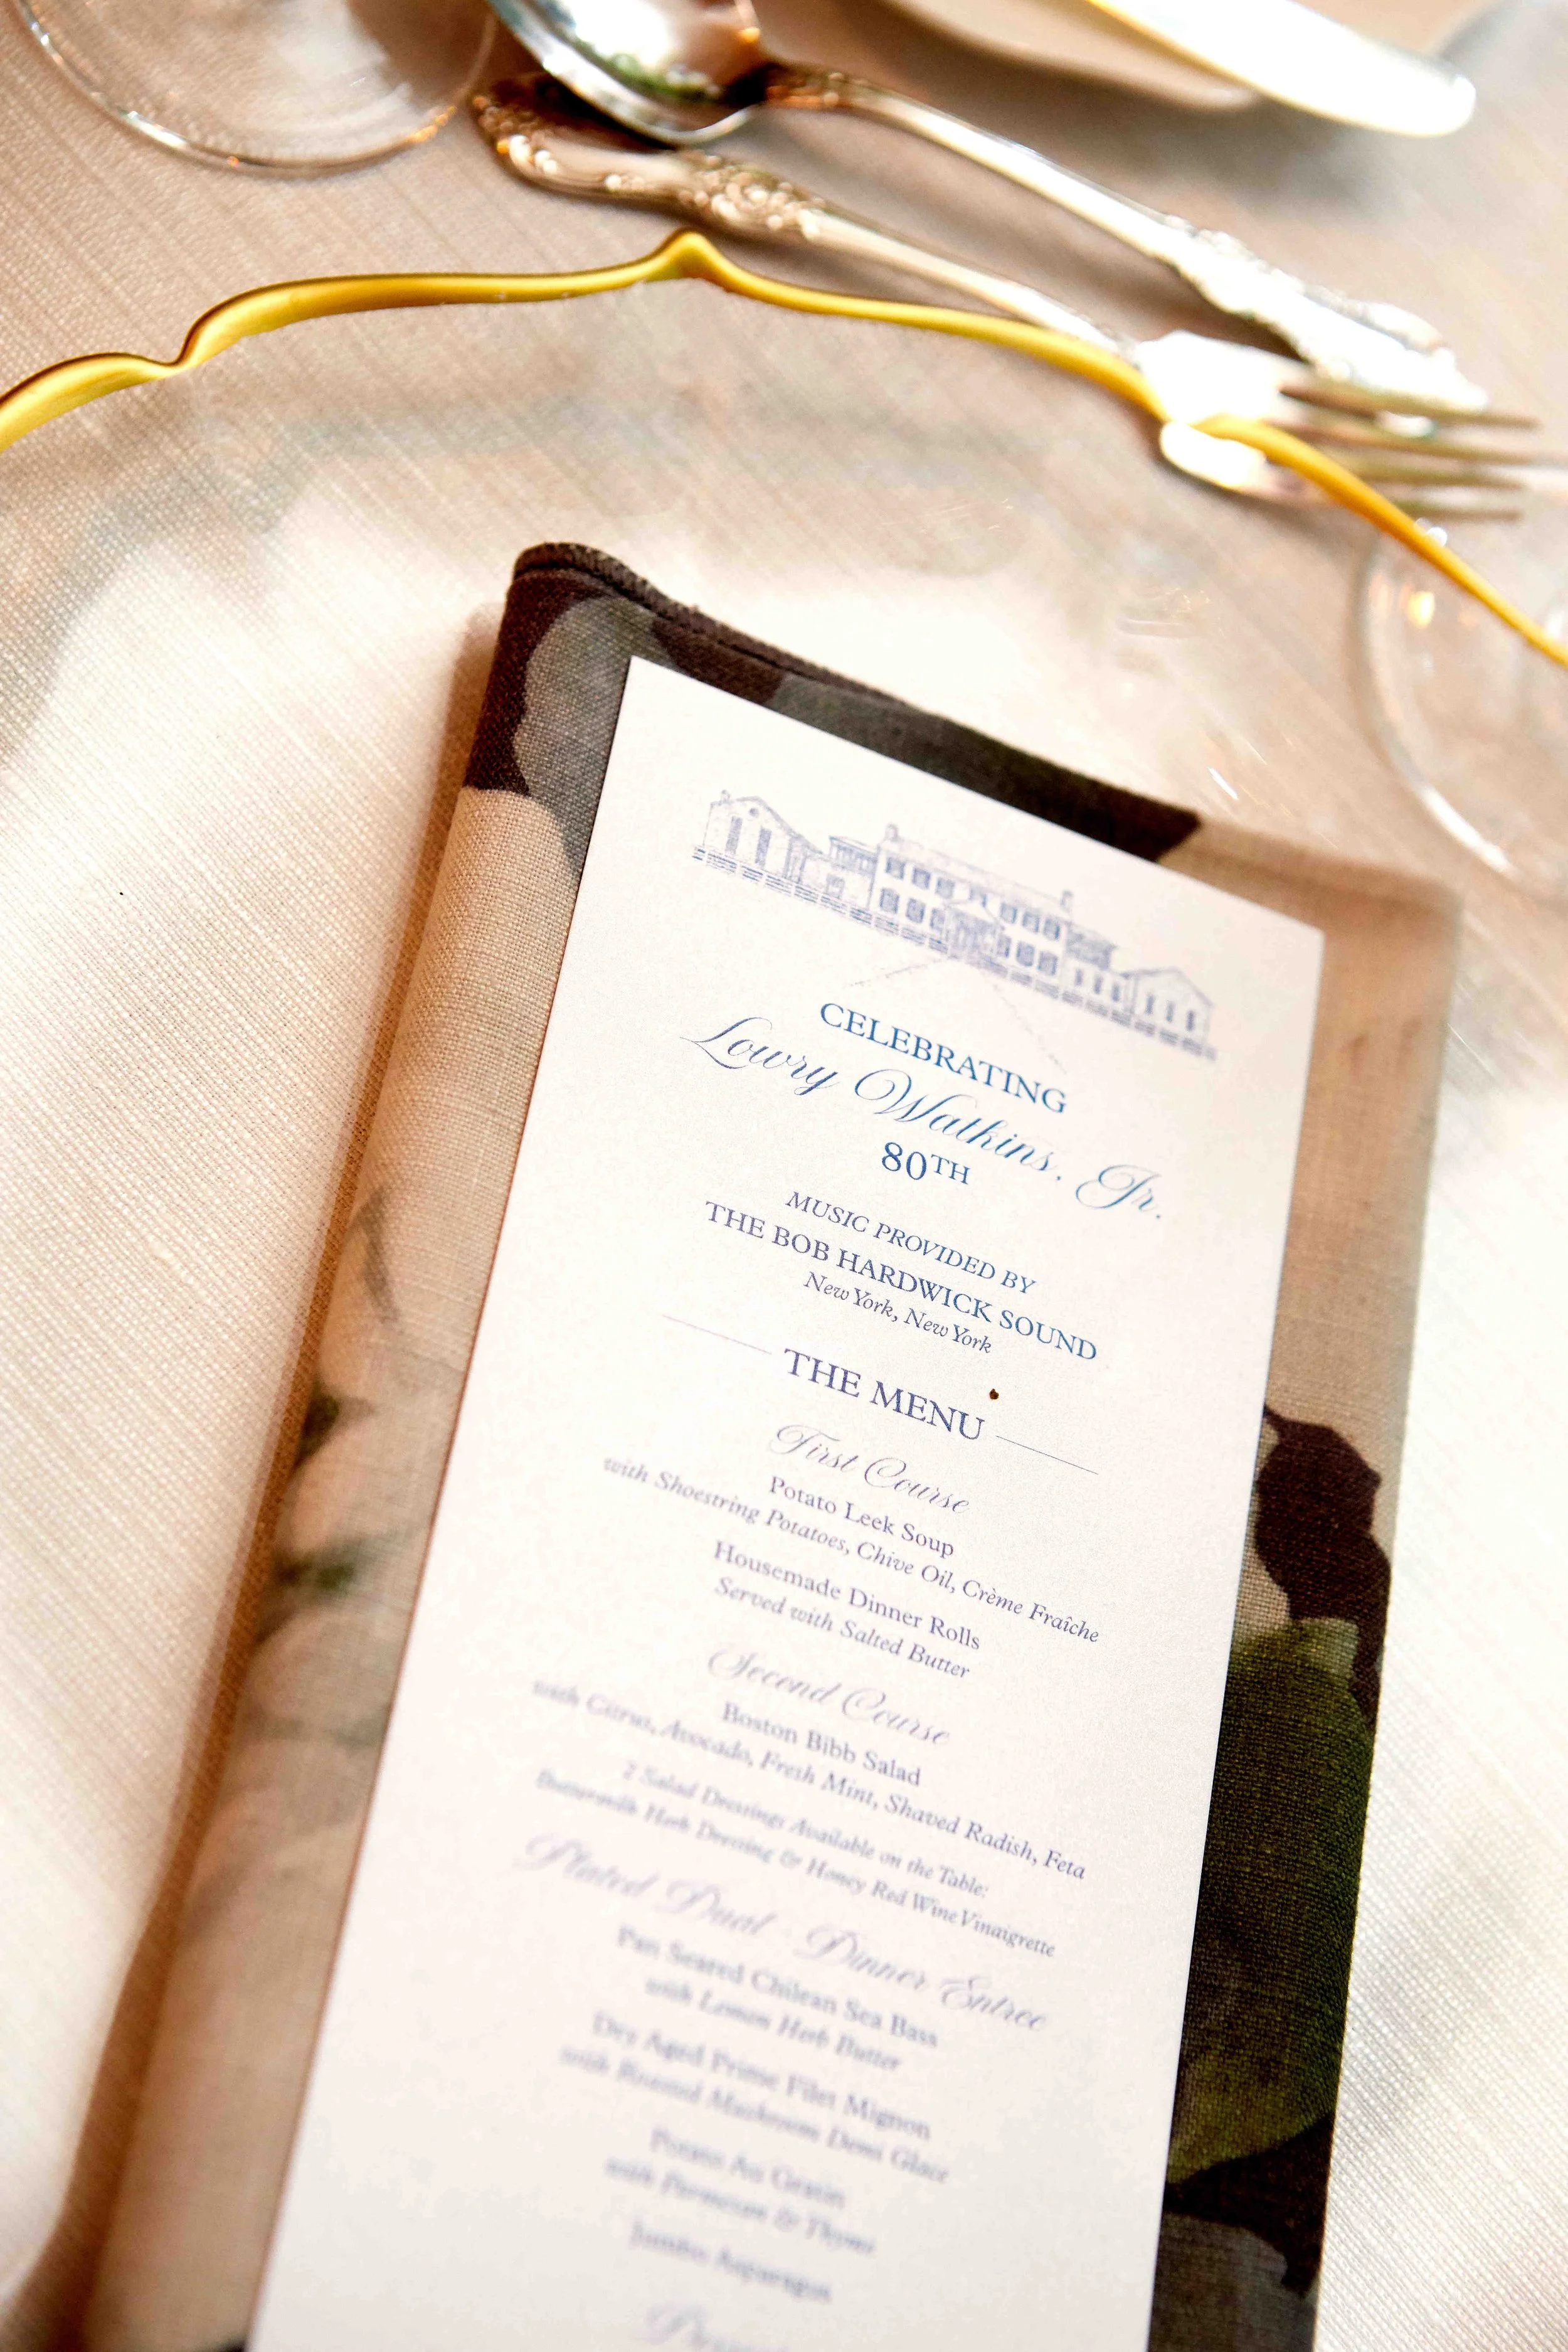 CELEBRATING
Lowry Watkins, Jr.
80TH
MUSIC PROVIDED BY
THE BOB HARDWICK SOUND
New York, New York
THE MENU
First Course
Potato Leek Soup
with Shoestring Potatoes, Chive Oil, Crème Fraîche
Housemade Dinner Rolls
Served with Salted Butter
Second Course
Boston Bibb Salad
with Citrus, Avocado, Fresh Mint, Shaved Radish, Feta
2 Salad Dressings Available on the Table:
Buttermilk Herb Dressing & Honey Red Wine Vinaigrette
Plated Dual - Dinner Entree
Pan Seared Chilean Sea Bass
with Lemon Herb Butter
Dry Aged Prime Filet Mignon
with Roasted Mushroom Demi Glace
Potato Au Gratin
with Parmesan & Thyme
Jumbo Asparagus